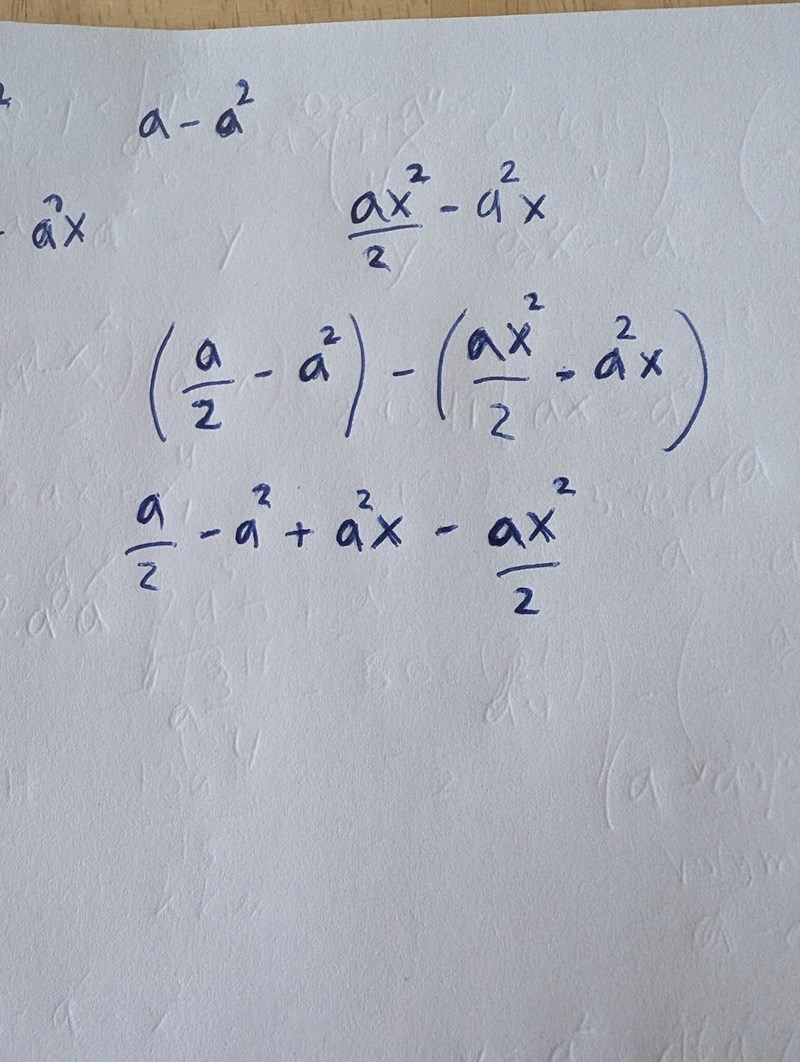 ² a - a²
- a²x ax²/2 - a²x
(a/2 - a²) - (ax²/2 - a²x)
a/2 - a² + a²x - ax²/2